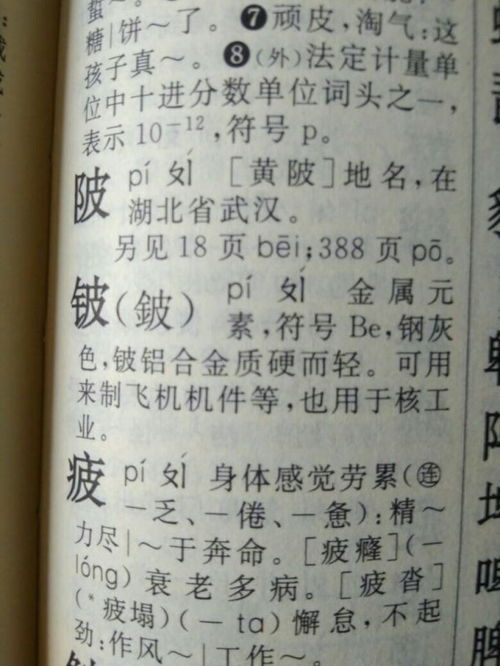 糖|饼~了。❼顽皮，淘气：这
孩子真~。❽（外）法定计量单
位中十进分数单位词头之一，
表示10⁻¹²，符号p。
陂 pí ㄆㄧˊ [黄陂]地名，在
湖北省武汉。
另见18页bēi；388页pō。
铍（鈹） pí ㄆㄧˊ 金属元
素，符号Be，钢灰
色，铍铝合金质硬而轻。可用
来制飞机机件等，也用于核工
业。
疲 pí ㄆㄧˊ 身体感觉劳累（连
—乏、—倦、—惫）：精~
力尽|~于奔命。[疲癃]（—
lóng）衰老多病。[疲沓]
（*疲塌）（—ta）懈怠，不起
劲：作风~|工作~。